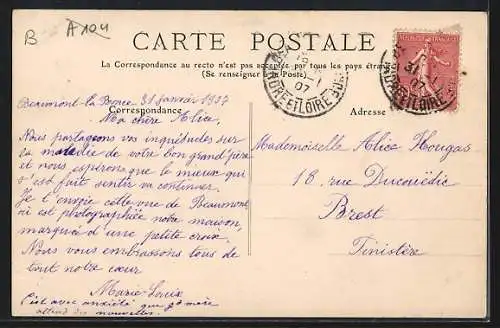 B A 104
CARTE POSTALE
La Correspondance au recto n'est pas acceptée par tous les pays étrangers
(Se renseigner à la Poste)
RÉPUBLIQUE FRANÇAISE
31 - 1
07
INDRE-ET-LOIRE
31 - 1
07
INDRE-ET-LOIRE
Correspondance
Adresse
Beaumont-la-Ronce 31 janvier 1907
Ma chère Alice,
Nous partageons vos inquiétudes sur
la maladie de votre bon grand père
et nous espérons que le mieux qui
s'est fait sentir va continuer.
Je t'envoie cette vue de Beaumont
où est photographiée notre maison,
marquée d'une petite croix.
Nous vous embrassons tous de
tout notre cœur
Marie-Louise
C'est avec anxiété que gd mère
attend des nouvelles.
Mademoiselle Alice Hougas
18 rue Ducouëdic
Brest
Finistère